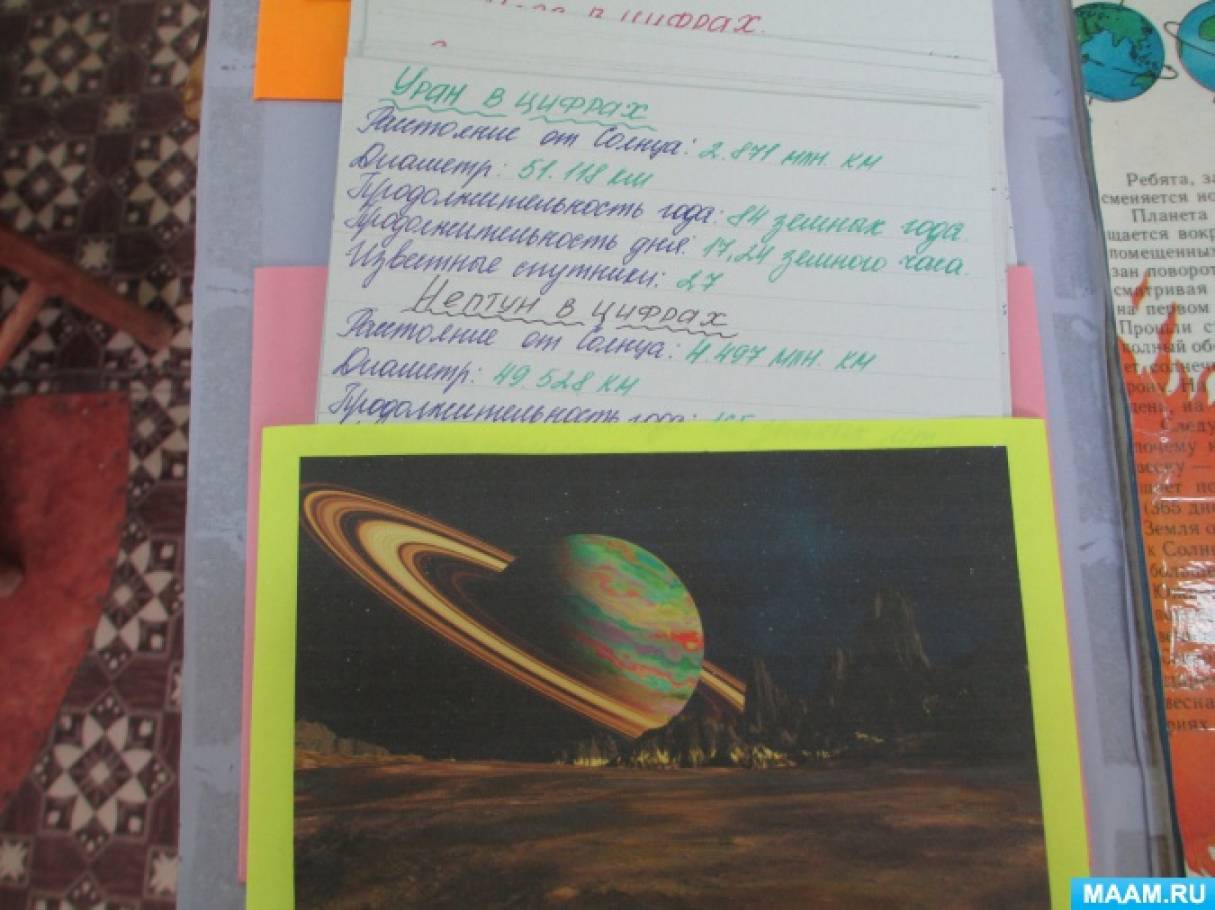 в цифрах.
Уран в цифрах
Растояние от Солнца: 2.871 млн. км
Диаметр: 51.118 км
Продолжительность года: 84 земных года.
Продолжительность дня: 17,24 земного часа.
Известные спутники: 27
Нептун в цифрах
Растояние от Солнца: 4.497 млн. км
Диаметр: 49.528 км
Продолжительность года: 165
Ребята, за
сменяется
Планета
щается вокр
помещенных
зан поворот
сматривая
на первом
Прошли
полный
ет солнеч
день, на
Следу
почему
(365 дн
Земля о
к Солн
больше
весна
риях
MAAM.RU